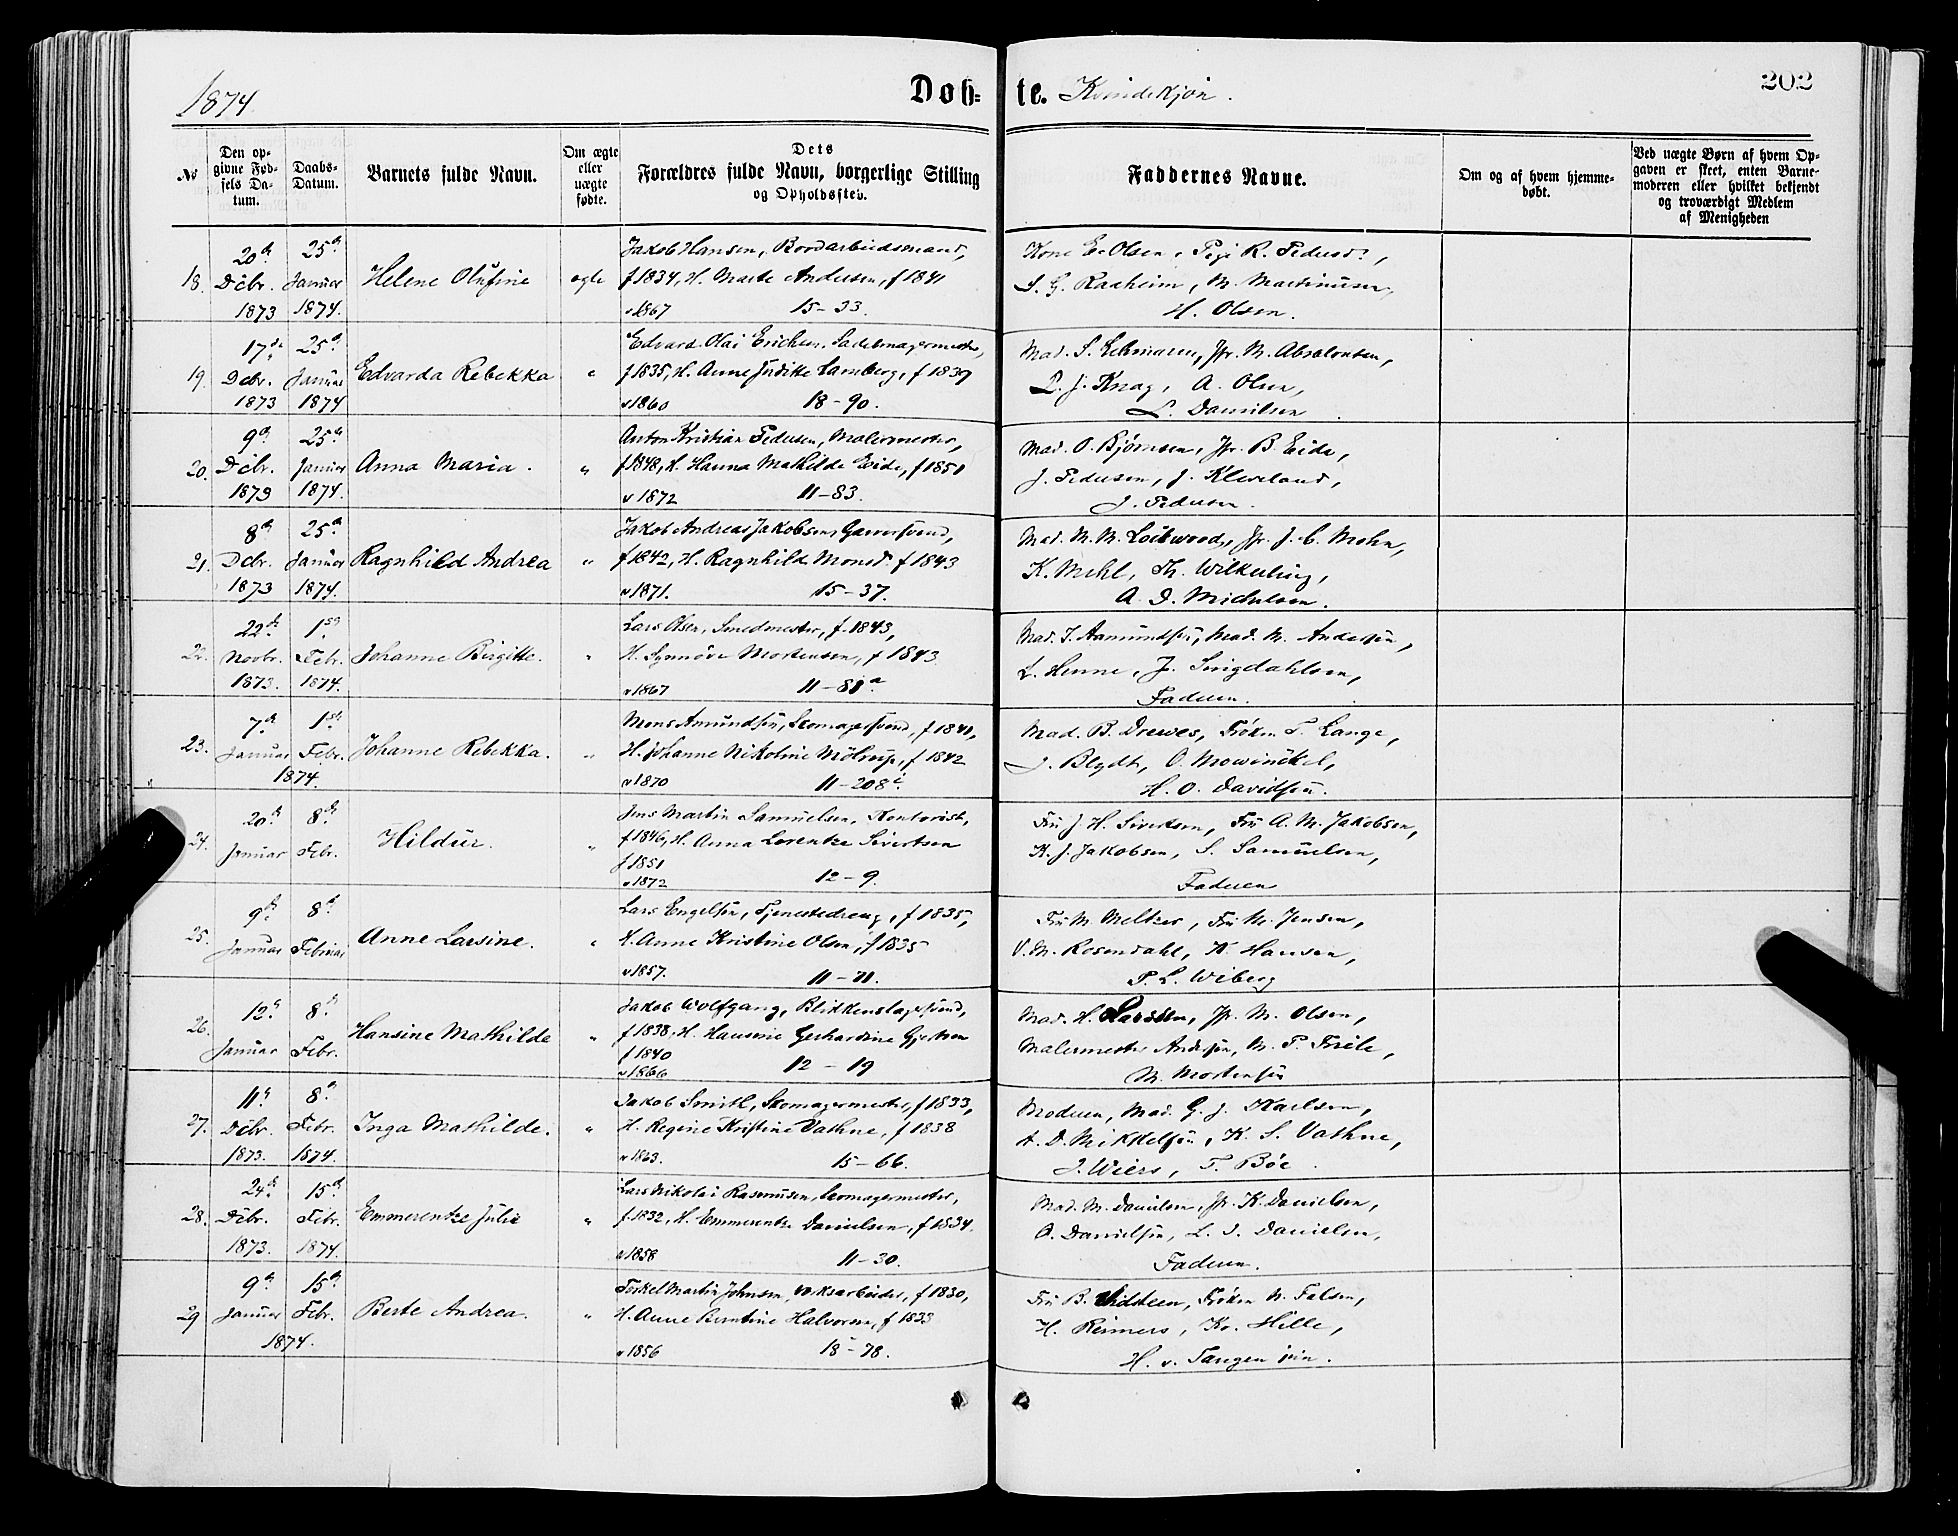 1874.
Døb= te. Kvindekjøn.
202
No
Den op=
givne Fød=
sels Da=
tum.
Daabs=
Datum.
Barnets fulde Navn.
Om ægte
eller
uægte
fødte.
Dets
Forældres fulde Navn, borgerlige Stilling
og Opholdssted.
Faddernes Navne.
Om og af hvem hjemme=
døbt.
Ved uægte Børn af hvem Op=
gaven er skeet, enten Barne=
moderen eller hvilket bekjendt
og troværdigt Medlem
af Menigheden
18. 20de Dcbr. 1873
25de Januar 1874.
Helene Olufine
ægte
Jakob Hansen, Bordarbeidsmand,
f 1834, H. Marte Andersen, f 1841
v 1867 15-33.
Kone E. Olsen, Pige R. Pedersd.,
S. G. Raaheim, M. Martinusen,
H. Olsen.
19. 17de Dcbr. 1873
25de Januar 1874
Edvarda Rebekka
"
Edvard Olai Erichsen, Sadelmagermester,
f 1835, H. Anne Juditte Lamberg, f 1839
v 1860 18-90.
Mad. S. Lehmann, Jfr. M. Absalonsen,
P. J. Knag, A. Olsen,
L. Danielsen
20. 9de Dcbr. 1873
25de Januar 1874.
Anna Maria.
"
Anton Kristian Pedersen, Malermester,
f 1848, H. Hanna Mathilde Eide, f 1851
v 1872 11-83.
Mad. O. Bjørnsen, Jfr. B. Eide,
J. Pedersen, J. Kleveland,
J. Pedersen.
21. 8de Dcbr. 1873
25de Januar 1874.
Ragnhild Andrea
"
Jakob Andreas Jakobsen, Garversvend,
f 1842, H. Ragnhild Monsd. f 1843
v 1871. 15-37.
Mad. M. M. Loitwood, Jfr. J. C. Mohn,
K. Mehl, Th.
A. D. Michelsen.
22. 22de Novbr. 1873.
1ste Febr. 1874.
Johanne Birgitte.
"
Lars Olsen, Smedmester, f. 1843,
H. Synnøve Mortensen, f 1843
v 1867 11-81a
Mad. I. Aamundsen, Mad. M. Andersen,
L. Henne, J.
Faderen.
23. 7de Januar
1ste Febr.
1874.
Johanne Rebekka.
"
Mons Amundsen, Skomagersvend, f 1841,
H. Johanne Nikoline Möltrup, f 1842
v 1870 11-208c
Mad. B. Drewes, Frøken T. Lange,
J. Blydt, O. Mowinckel,
H. O. Davidsen.
24. 20de Januar
8de Febr.
Hildur.
"
Jens Martin Samuelsen, Kontorist,
f 1846, H. Anna Lorentze Sivertsen
f 1851
v 1872 12-9.
Fru J. H. Sivertsen, Fru A. M. Jakobsen,
K. J. Jakobsen, S. Samuelsen,
Faderen
25. 9de Januar
8de Februar
Anne Larsine.
"
Lars Engelsen, Tjenestedreng, f 1835,
H. Anne Kristine Olsen, f 1835
v 1857. 11-71.
Fru M. Meltzer, Fru M. Jensen,
V. M. Rosendahl, K. Hansen,
P. L. Wiberg
26. 12te Januar
8de Febr.
Hansine Mathilde
"
Jakob Wolfgang, Blikkenslagersvend,
f 1838, H. Hansine Gerhardine Gjertsen
f 1840
v 1866 12-19
Mad. H. Larssen, Jfr. M. Olsen,
Malermester Andersen, M. P. Friele,
M. Mortensen
27. 11te Dcbr. 1873.
8de Febr. 1874.
Inga Mathilde.
"
Jakob Smith, Skomagermester, f 1833,
H. Regine Kristine Vathne, f 1838
v 1863. 15-66.
Moderen, Mad. G. J. Karlsen,
A. D. Mikkelsen, K. S. Vathne,
J. Wiers, T. Böe
28. 24de Dcbr. 1873.
15de Febr. 1874.
Emmerentze Julie
"
Lars Nikolai Rasmusen, Skomagermester,
f. 1832, H. Emmerentze Danielsen, f 1834.
v 1858 11-30.
Mad. M. Danielsen, Jfr. K. Danielsen,
O. Danielsen, L. J. Danielsen,
Faderen.
29 9de Januar
15de Febr.
1874.
Berte Andrea.
"
Torkel Martin Johnsen, Værksarbeider, f 1830,
H. Anne Berntine Halvorsen, f 1833
v 1856 18-78.
Fru B. Vidsteen, Frøken N. Falsen,
H. Reimers, Kr. Hille,
H. v. Tangen jun.